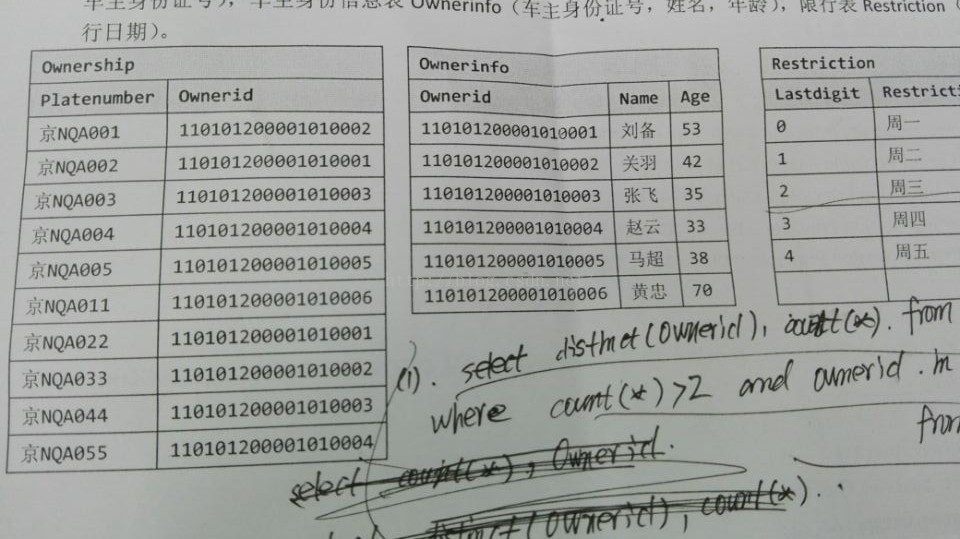 车主身份证号），车主身份信息表 Ownerinfo（车主身份证号，姓名，年龄），限行表 Restriction（
行日期）。
Ownership
Platenumber Ownerid
京NQA001 110101200001010002
京NQA002 110101200001010001
京NQA003 110101200001010003
京NQA004 110101200001010004
京NQA005 110101200001010005
京NQA011 110101200001010006
京NQA022 110101200001010001
京NQA033 110101200001010002
京NQA044 110101200001010003
京NQA055 110101200001010004
Ownerinfo
Ownerid Name Age
110101200001010001 刘备 53
110101200001010002 关羽 42
110101200001010003 张飞 35
110101200001010004 赵云 33
110101200001010005 马超 38
110101200001010006 黄忠 70
Restriction
Lastdigit Restricti
0 周一
1 周二
2 周三
3 周四
4 周五
(1). select distinct(Ownerid), count(*). from
where count(*)>2 and ownerid. in
from
select count(*), Ownerid.
distinct(Ownerid), count(*)..